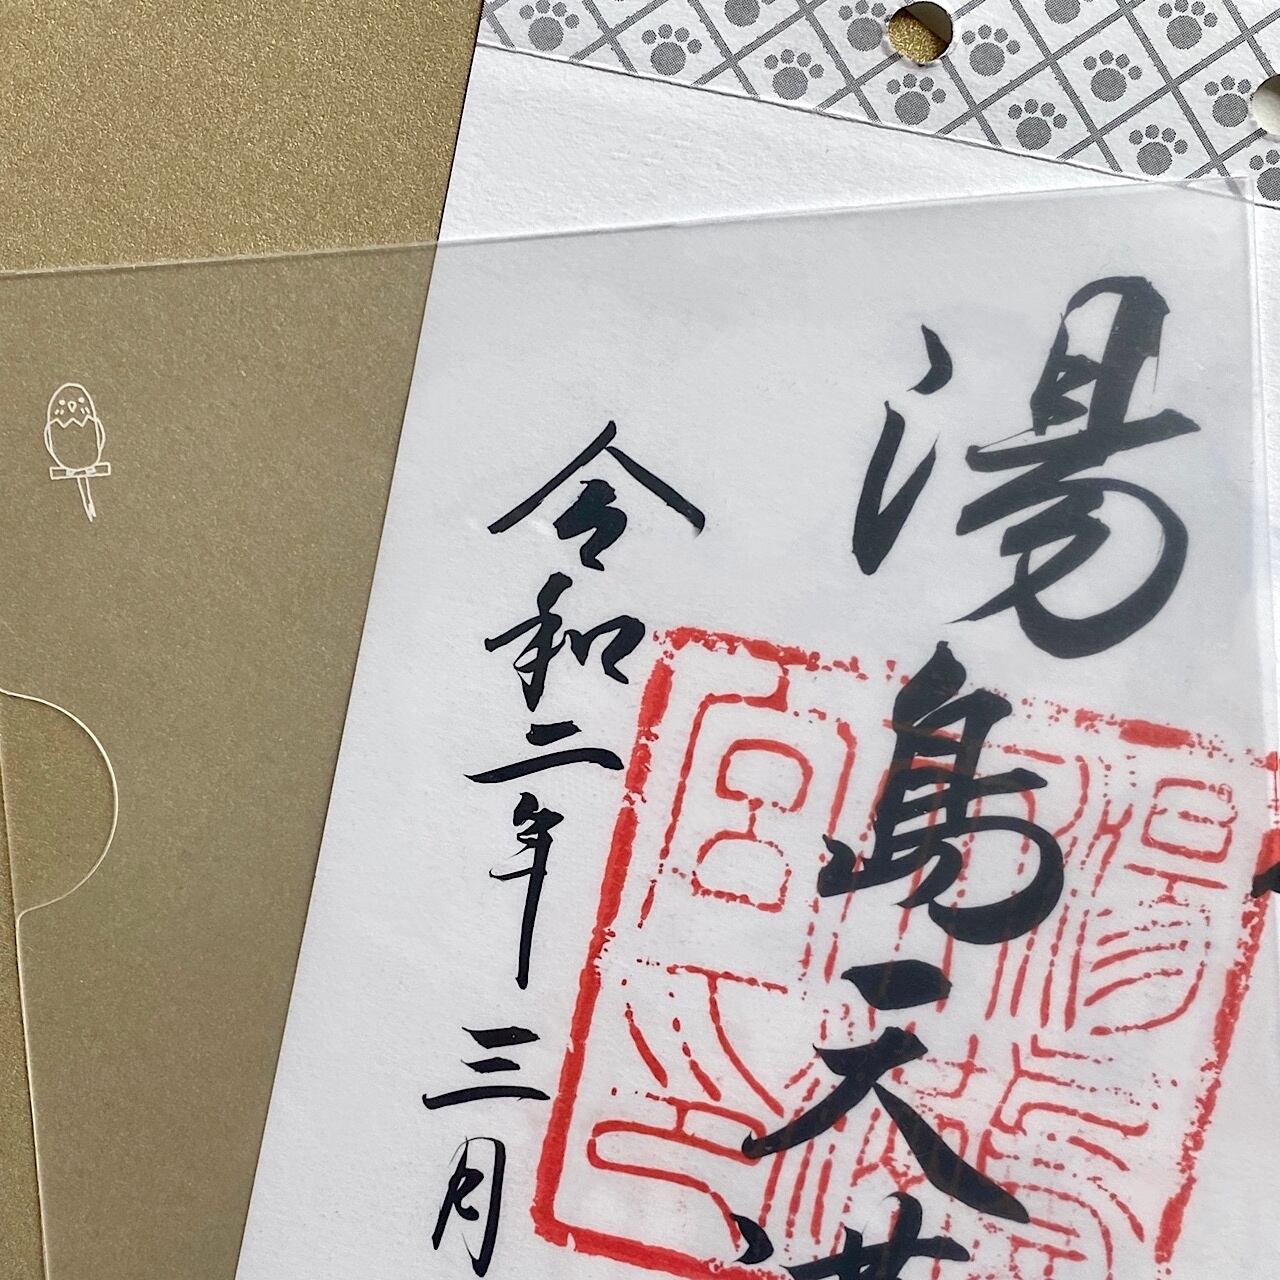 湯島天満
令和二年三月